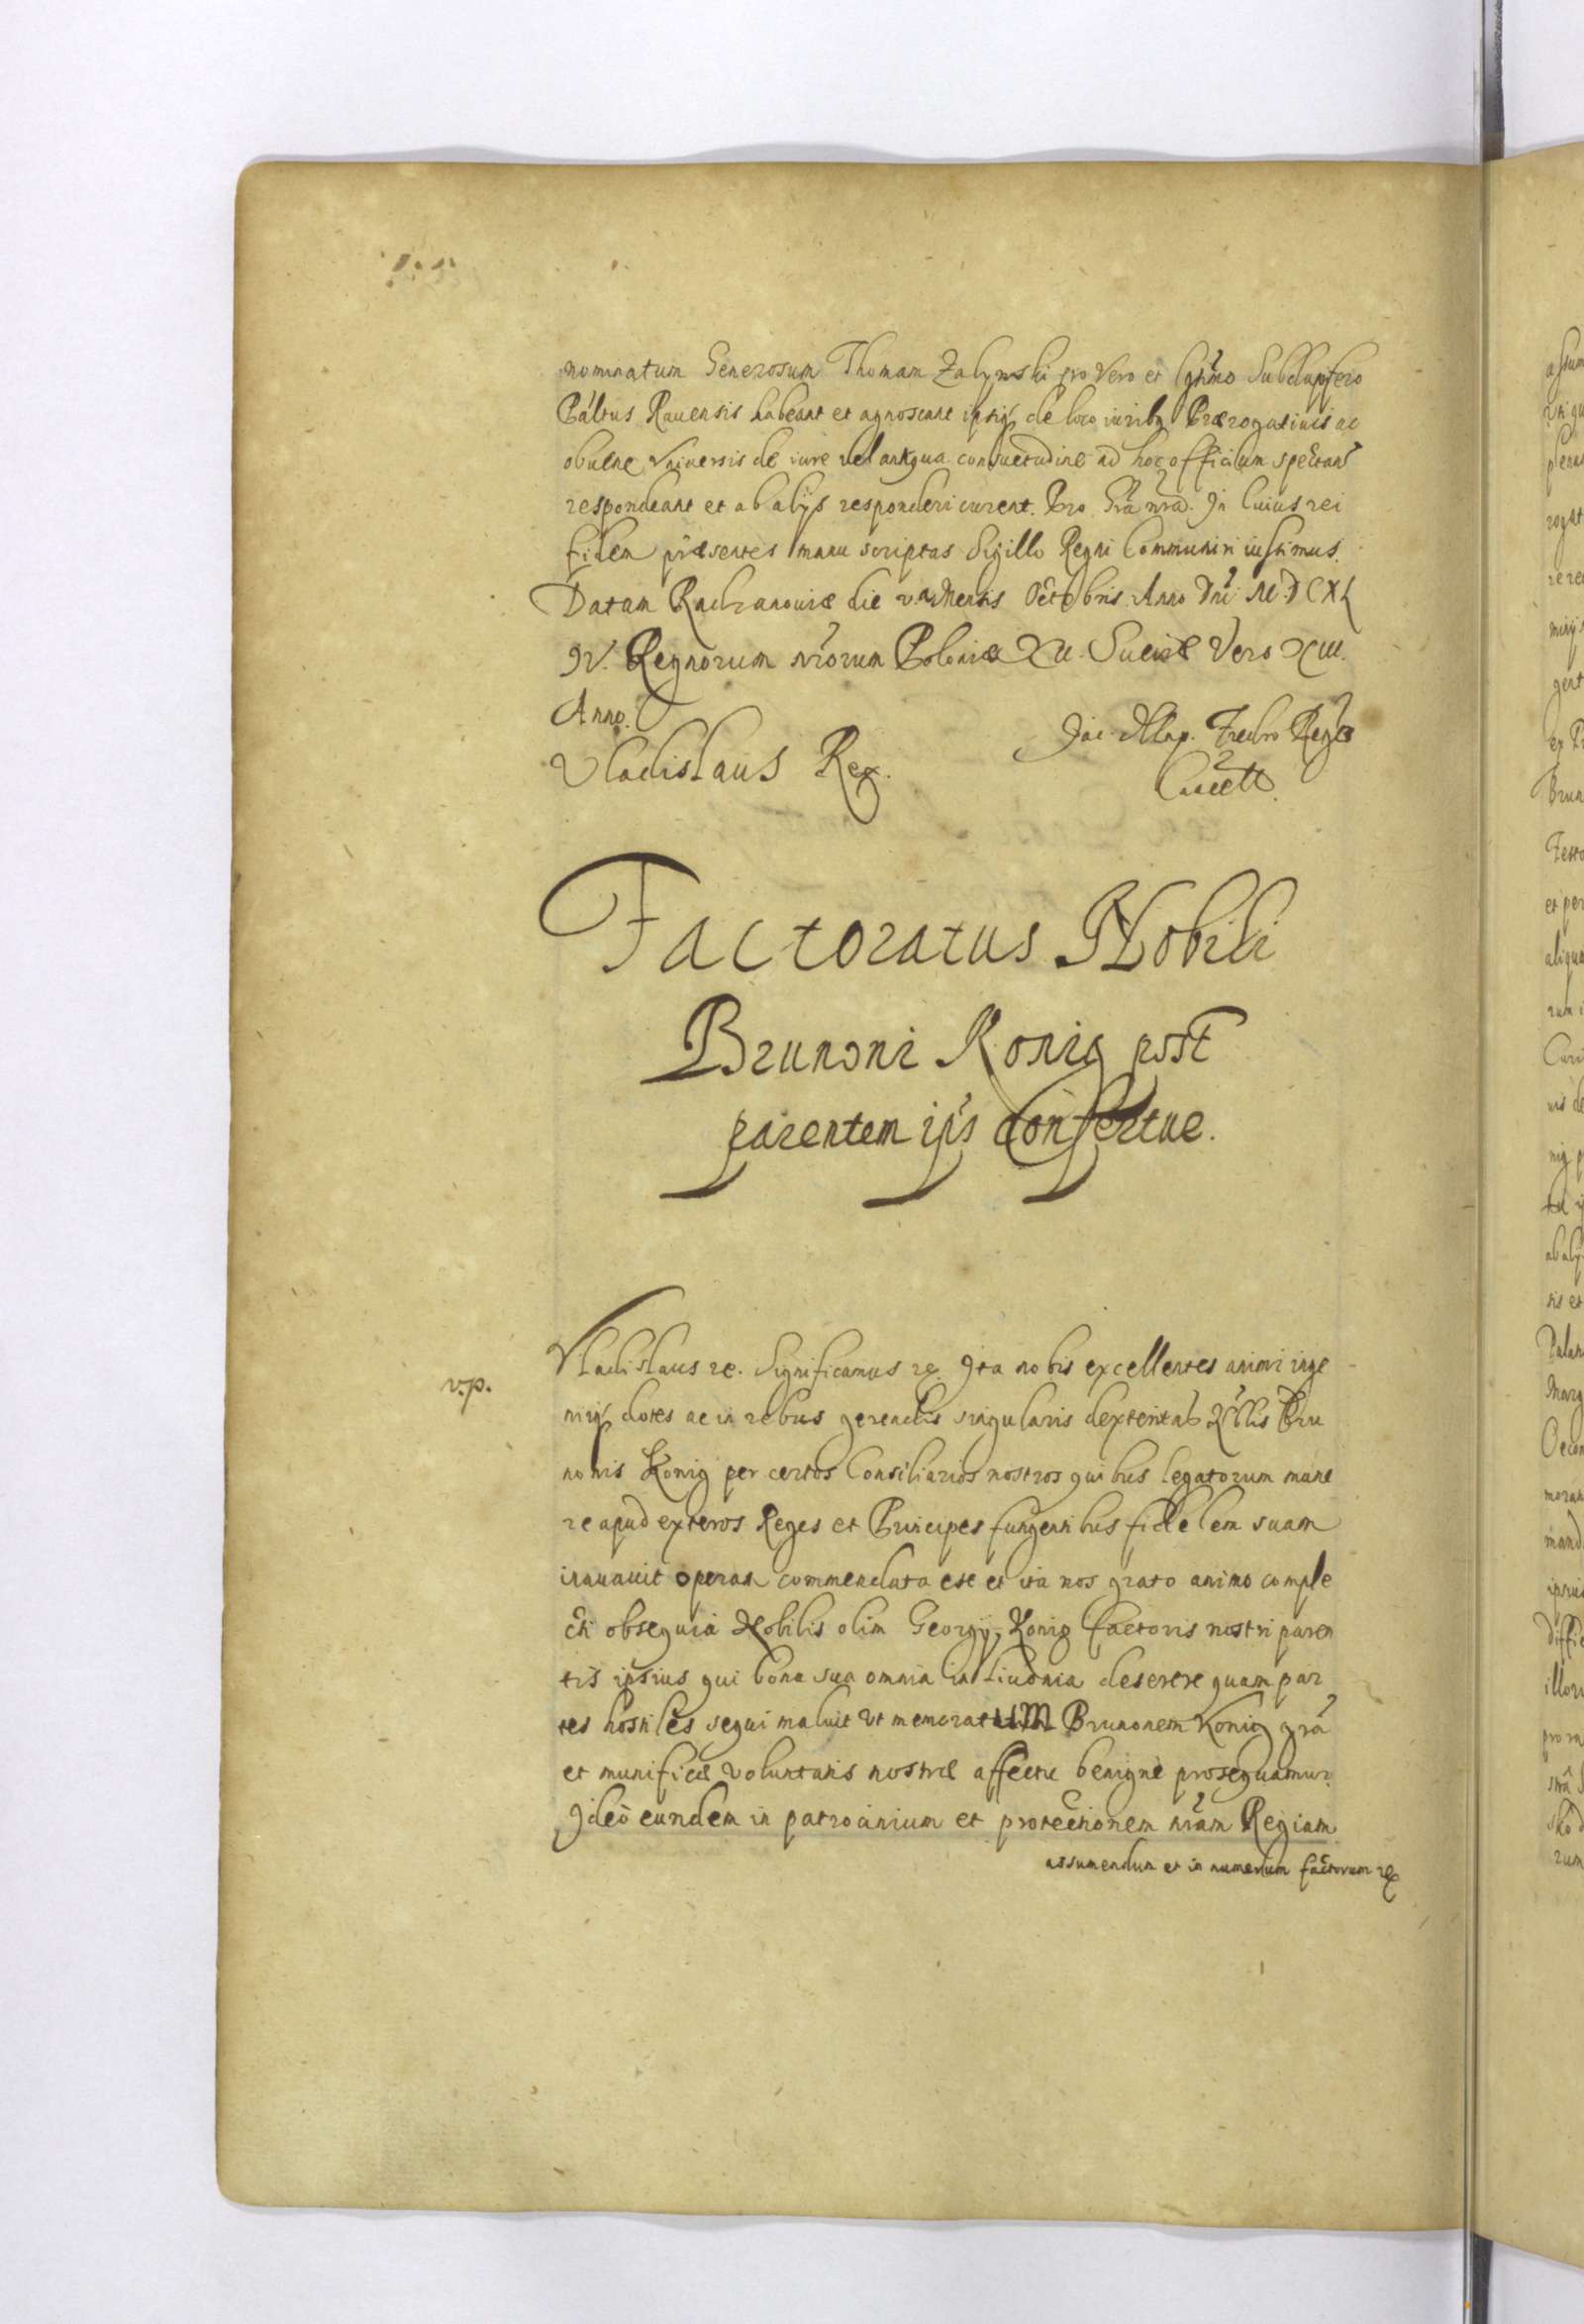 nominatum Generosum Thomam Zalynski pro vero et lgñmo Subdapifero
Pãltus Rauensis habeant et agnoscant ipsiq de loco iuribq Prærogatiuis ac
obuene Vniuersis de iure vel antiqua consuetudine ad hoc officium spectan
respondeant et ab alijs responderi curent. Pro Grã nrã. In Cuius rei
fidem præsentes manu scriptas Sigillo Regni Communiri iussimus.
Datam Rachanouiæ die v. Mensis Octobris Anno Dñi M.DCXL
IV. Regnorum nrõrum Poloniæ XII. Sueciæ Vero XIII.
Anno.
Vladislaus Rex.
Jac. Max. Fredro Regẽs
Cancell.
Factoratus Nobili
Brunoni Konig post
parentem ips Confertue.
v.p.
Vladislaus re. Significamus re. Ita nobis excellentes animi inge
nijq dotes ac in rebus gerendis singularis dexteritas Nblis Bru
nonis Konig per certos Consiliarios nostros quibus legatorum mune
re apud exteros Reges et Principes fungentibus fidelem suam
inauauit operam commendata est et ita nos grato animo comple
cti obsequia Nobilis olim Georgij Konig factoris nostri paren
tis ipsius qui bona sua omnia in Liuonia deserere quam par
tes hostiles sequi maluit Vt memoratum Brunonem Konig grã
et munificæ voluntatis nostræ affectu benignè prosequamur
Ideò eundem in patrocinium et protectionem nrãm Regiam
assumendum et in numerum factorum re